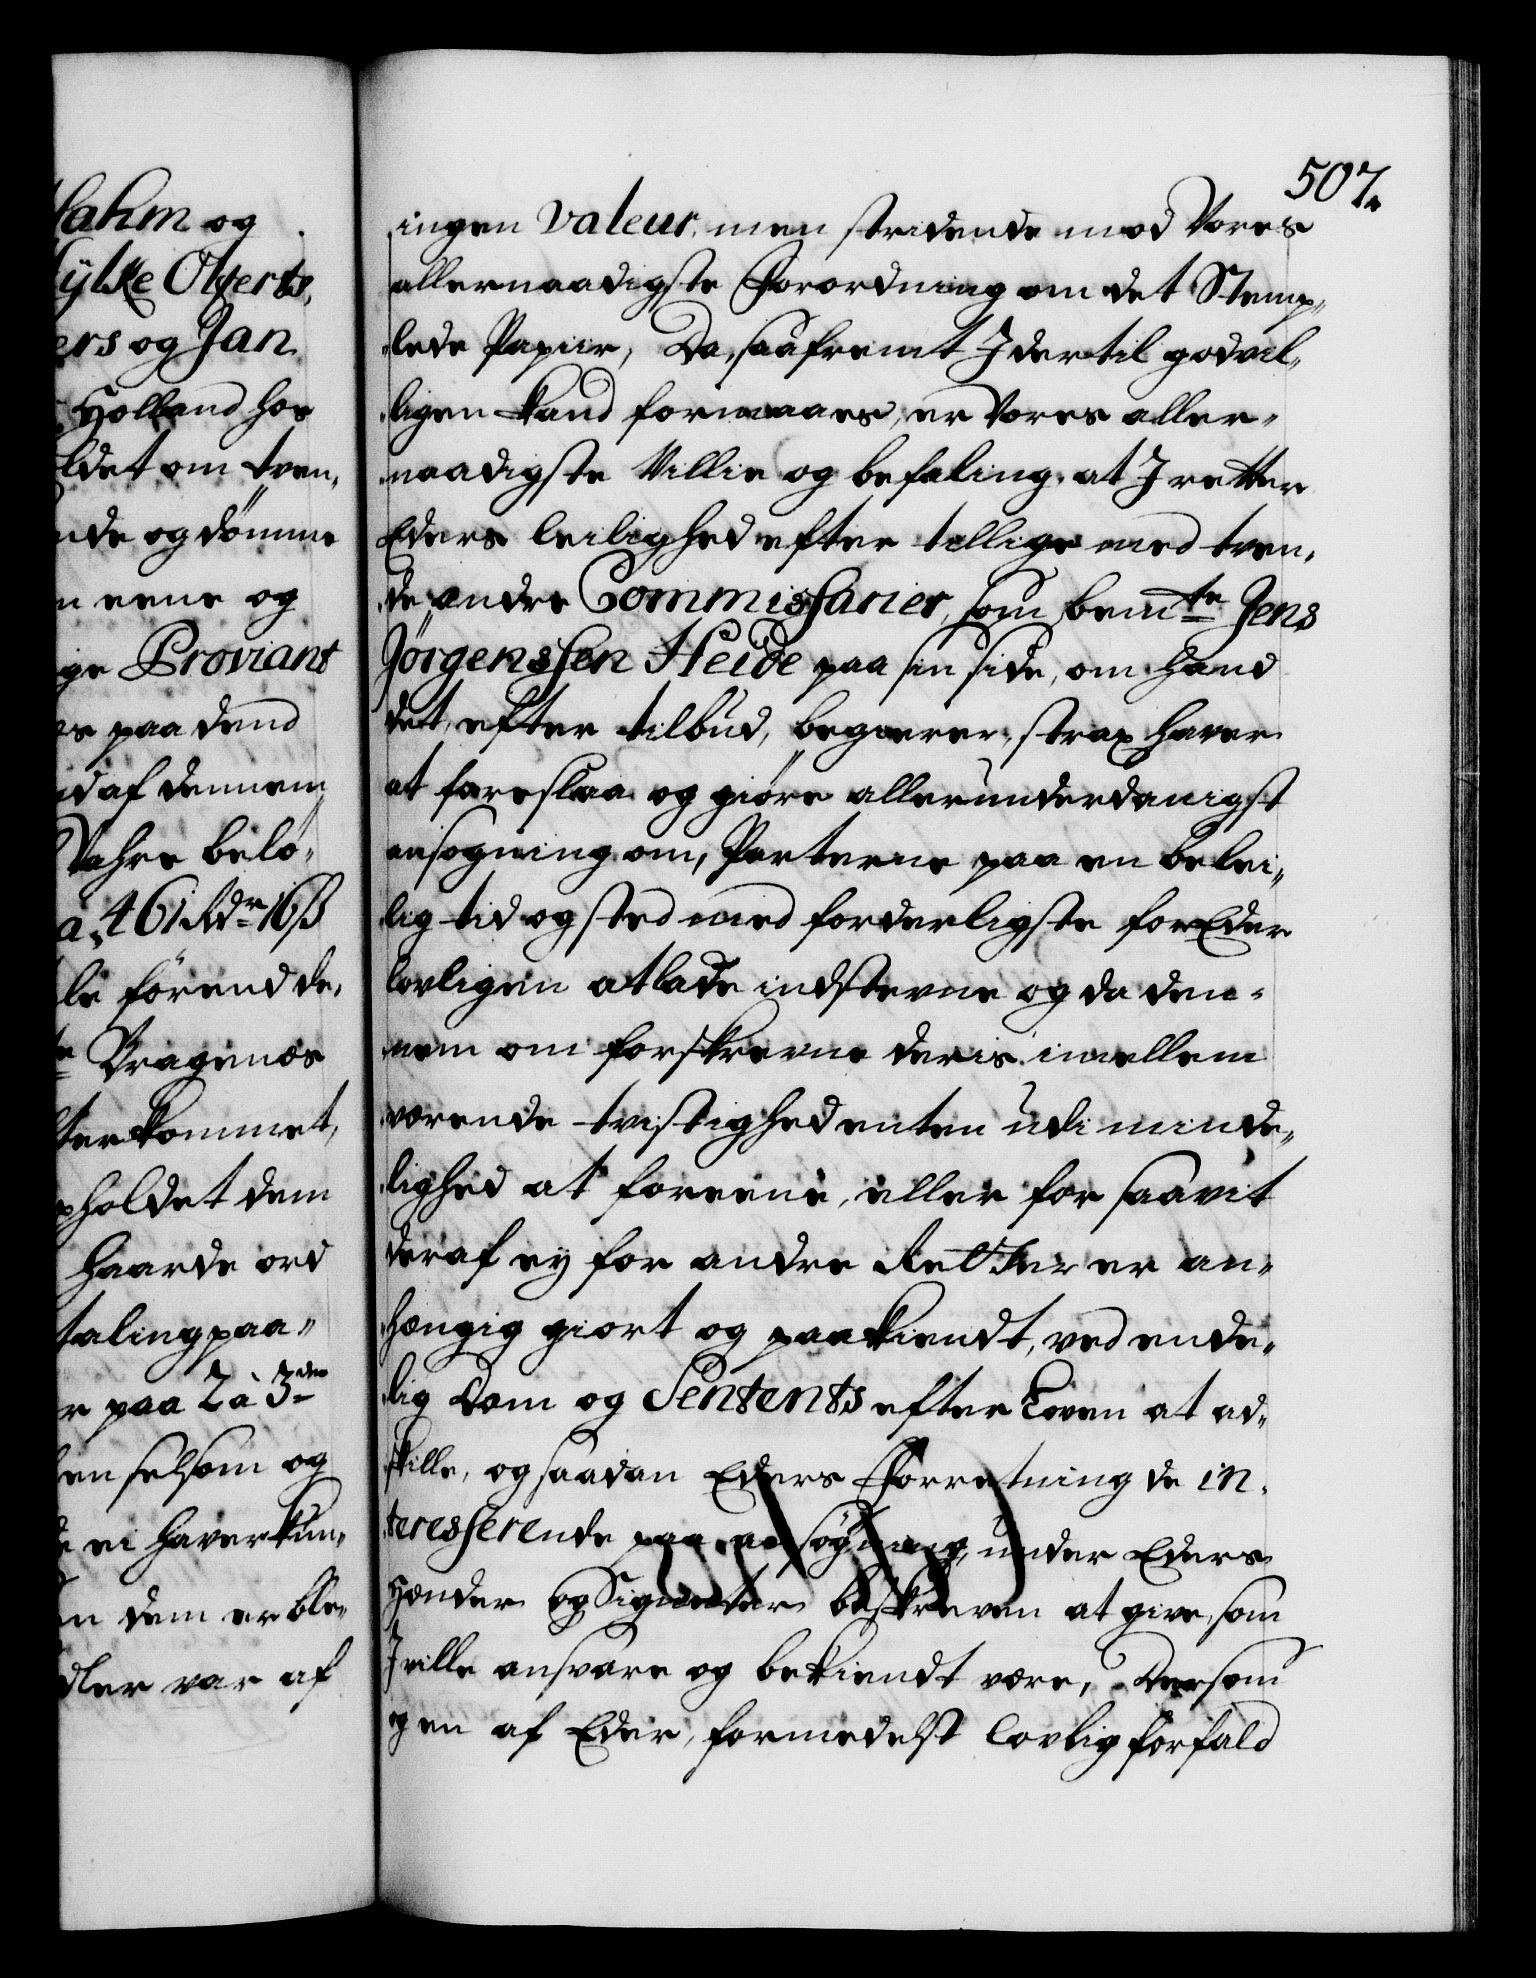 hahm og
Hylke Olferts,
ers og Jan
Holland hos
ldet om tven„
nde og dömme
n eene og
ge Proviant
os paa dend
id af dennem
Vahre belö„
a 461 Rdr 16 ß
le förend de„
Bragenæs
ter kommet,
pholdet dem
haarde ord
taling paa„
r paa 2 à 3de
en selsom og
e ei haver kun„
n dem er ble„
dler var af
507.
ingen Valeur, men stridende mod Vores
allernaadigste Forordning om det Stemp„
lede Papiir, Da, saafremt I dertil godvil„
ligen kand formaaes, er Vores aller„
naadigste Villie og befaling, at I retter
Eders leilighed efter tillige med tven„
de andre Commissarier, som bemte Jens
Jörgenssen Heide paa sin side, om hand
det, efter tilbud, begierer, strax haver
at foreslaa og giöre allerunderdanigst
ansogning om, Parterne paa en belei„
lig tid og sted med forderligste for Eder
lovligen at lade indstevne og da den„
nem om forskrevne deris imellem
værende tvistighed enten udi minde„
lighed at foreene, eller for saavit
deraf ey for andre Retter er an„
hængig giort og paakiendt, ved ende„
lig Dom og Sentents efter Loven at ad„
skille, og saadan Eders Forretning de in„
teresserende paa ansögning, under Eders
Hænder og Signeter beskreven at give, som
I ville ansvare og bekiendt være, Dersom
gen af Eder, formedelst lovlig forfald